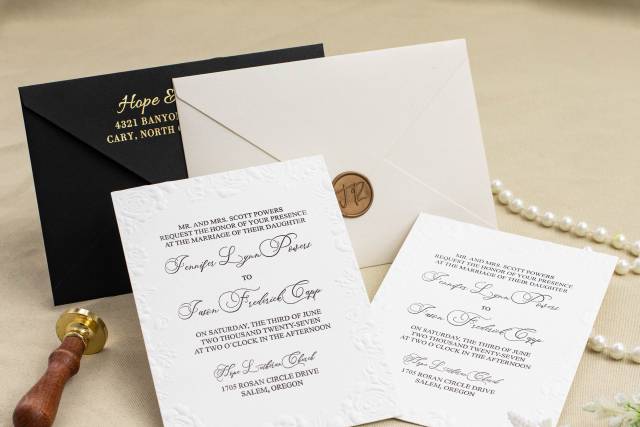 Hope &
4321 BANYO
CARY, NORTH
JR
MR. AND MRS. SCOTT POWERS
REQUEST THE HONOR OF YOUR PRESENCE
AT THE MARRIAGE OF THEIR DAUGHTER
Jennifer Lynn Powers
TO
Jason Frederick Capp
ON SATURDAY, THE THIRD OF JUNE
TWO THOUSAND TWENTY-SEVEN
AT TWO O'CLOCK IN THE AFTERNOON
Hope Lutheran Church
1705 ROSAN CIRCLE DRIVE
SALEM, OREGON
MR. AND MRS. SCOTT POWERS
REQUEST THE HONOR OF YOUR PRESENCE
AT THE MARRIAGE OF THEIR DAUGHTER
Jennifer Lynn Powers
TO
Jason Frederick Capp
ON SATURDAY, THE THIRD OF JUNE
TWO THOUSAND TWENTY-SEVEN
AT TWO O'CLOCK IN THE AFTERNOON
Hope Lutheran Church
1705 ROSAN CIRCLE DRIVE
SALEM, OREGON